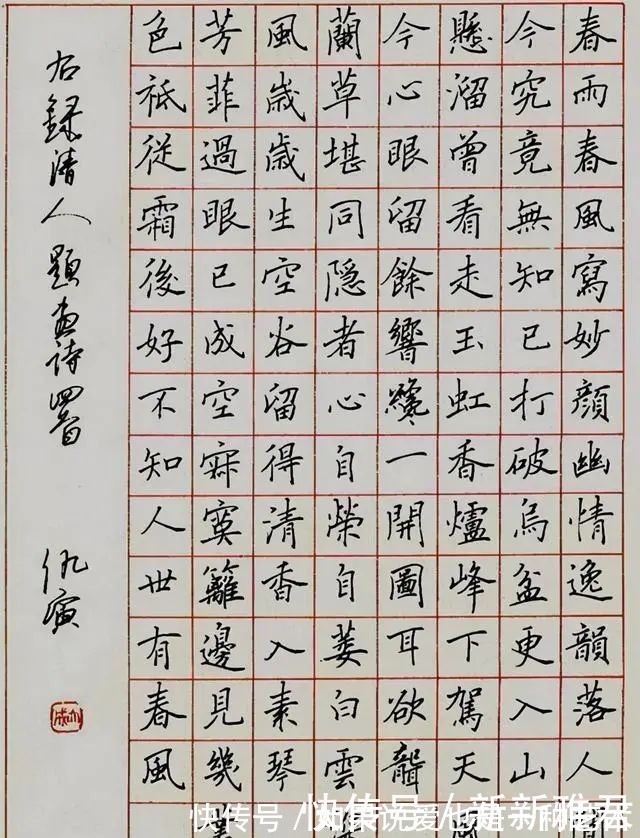 春雨春風寫妙顏幽情逸韻落人
今究竟無知已打破烏盆更入山
懸溜曾看走玉虹香爐峰下駕天
今心眼留餘響纔一開圖耳欲聾
蘭草堪同隱者心自榮自萎白雲
風歲歲生空谷留得清香入素琴
芳菲過眼已成空寂寞籬邊見幾
色祗從霜後好不知人世有春風
右錄清人題畫詩四首
仇寅
快传号
快传号